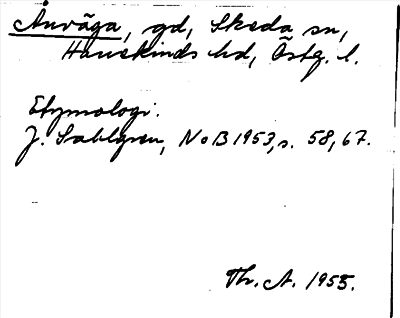 Ånväga, gd, Skeda sn,
Hanekinds hd, Östg. l.
Etymologi.
J. Sahlgren, NoB 1953, s. 58, 67.
Th. A. 1955.